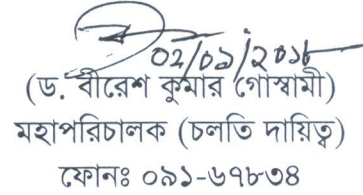 02/09/2018
(ড. বীরেশ কুমার গোস্বামী)
মহাপরিচালক (চলতি দায়িত্ব)
ফোনঃ ০৯১-৬৭৮৩৪